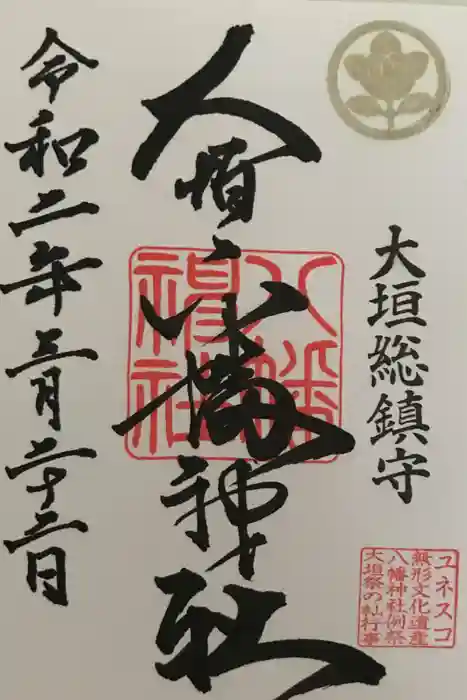 大垣総鎮守
ユネスコ
無形文化遺産
八幡神社例祭
大垣祭の䡄行事
大垣八幡神社
八幡
神社
令和二年三月二十三日